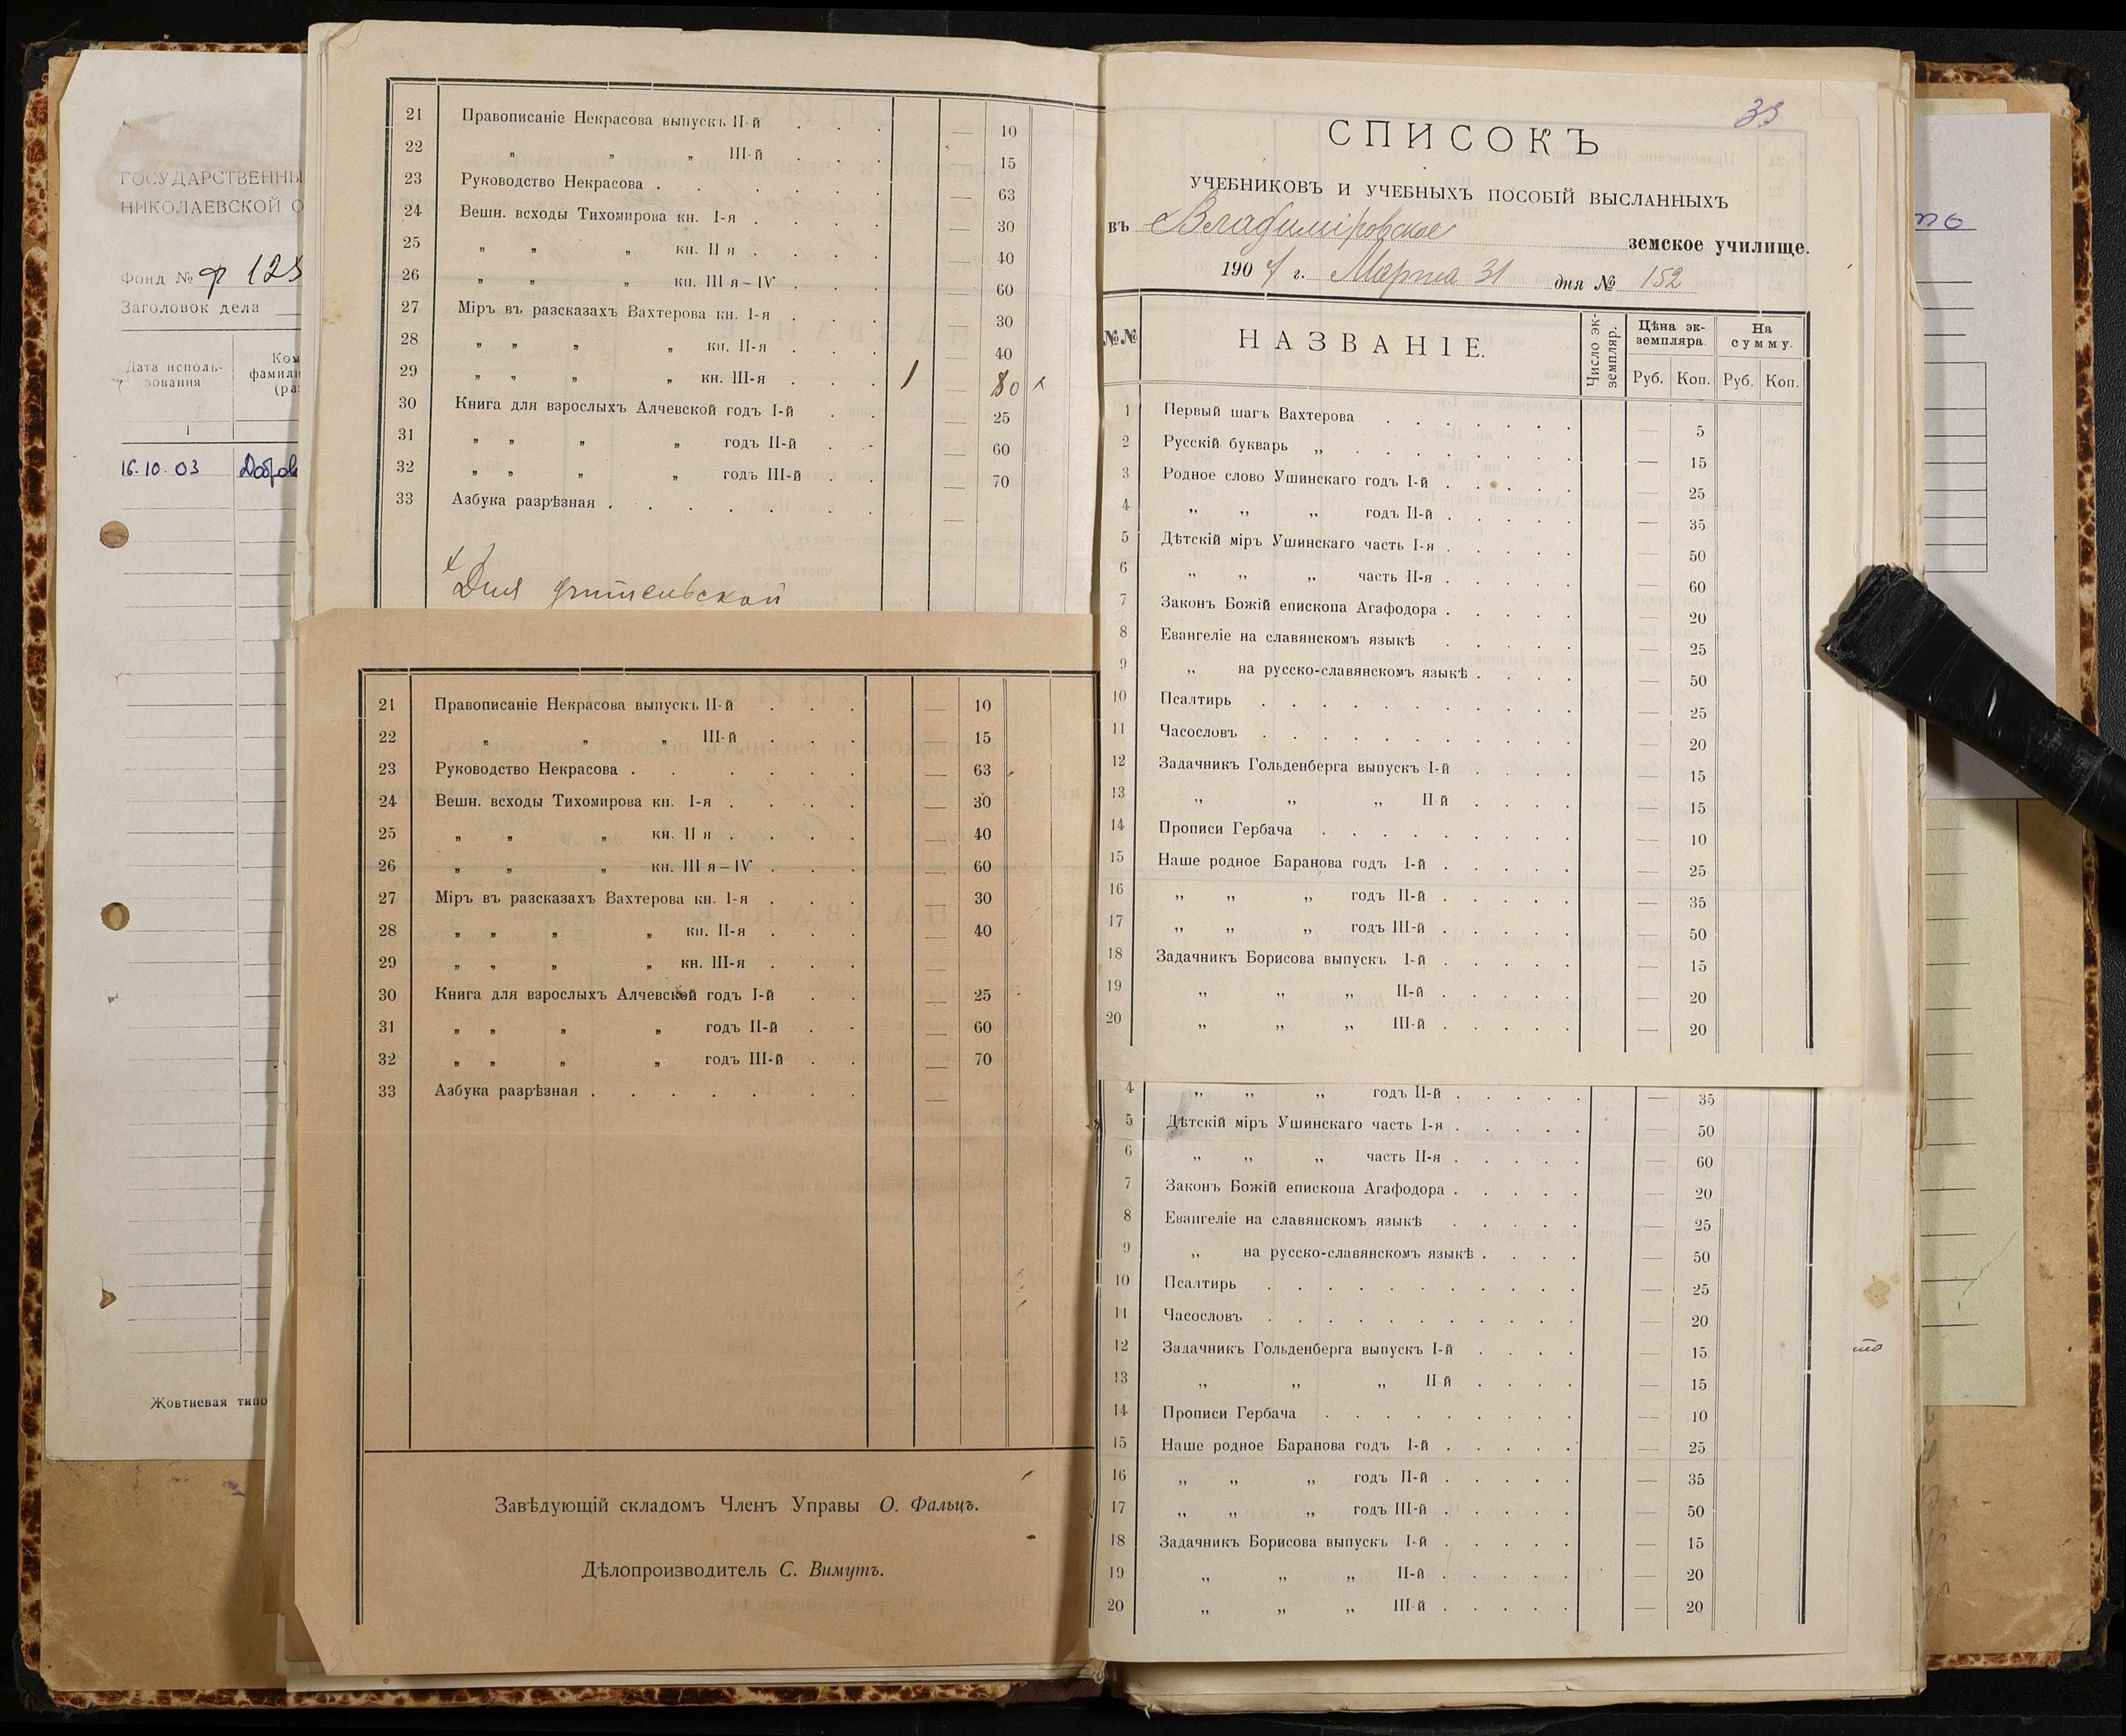 ГОСУДАРСТВЕННЫ
НИКОЛАЕВСКОЙ О
Фонд № ф 128
Заголовок дела
Дата исполь-
зования
1
16.10.03
Жовтневая типо
21 Правописаніе Некрасова выпускъ II-й . . . — 10
22 „ „ „ III-й . . . — 15
23 Руководство Некрасова . . . . . . — 63
24 Вешн. всходы Тихомирова кн. I-я . . . . — 30
25 „ „ „ кн. II я . . . . — 40
26 „ „ „ кн. III я – IV . . . — 60
27 Міръ въ разсказахъ Вахтерова кн. I-я . . . — 30
28 „ „ „ „ кн. II-я . . . — 40
29 „ „ „ „ кн. III-я . . . 1 — 80 x
30 Книга для взрослыхъ Алчевской годъ I-й . . — 25
31 „ „ „ „ годъ II-й . - — 60
32 „ „ „ „ годъ III-й . . — 70
33 Азбука разрѣзная . . . . . . . —
x Для учительской
21 Правописаніе Некрасова выпускъ II-й . . . — 10
22 „ „ „ III-й . . . — 15
23 Руководство Некрасова . . . . . . — 63
24 Вешн. всходы Тихомирова кн. I-я . . . . — 30
25 „ „ „ кн. II я . . . . — 40
26 „ „ „ кн. III я – IV . . . — 60
27 Міръ въ разсказахъ Вахтерова кн. I-я . . . — 30
28 „ „ „ „ кн. II-я . . . — 40
29 „ „ „ „ кн. III-я . . . —
30 Книга для взрослыхъ Алчевской годъ I-й . . — 25
31 „ „ „ „ годъ II-й . - — 60
32 „ „ „ „ годъ III-й . . — 70
33 Азбука разрѣзная . . . . . . . —
Завѣдующій складомъ Членъ Управы О. Фальцъ.
Дѣлопроизводитель С. Вимутъ.
33
СПИСОКЪ
УЧЕБНИКОВЪ И УЧЕБНЫХЪ ПОСОБІЙ ВЫСЛАННЫХЪ
въ Владиміровское земское училище.
1907 г. Марта 31 дня № 152
№№ НАЗВАНІЕ. Число эк-земпляр. Цѣна эк-земпляра. На сумму.
Руб. Коп. Руб. Коп.
1 Первый шагъ Вахтерова . . . . . . . — 5
2 Русскій букварь „ . . . . . . . — 15
3 Родное слово Ушинскаго годъ I-й . . . . . — 25
4 „ „ „ годъ II-й . . . . . — 35
5 Дѣтскій міръ Ушинскаго часть I-я . . . . . — 50
6 „ „ „ часть II-я . . . . . — 60
7 Законъ Божій епископа Агафодора . . . . . — 20
8 Евангеліе на славянскомъ языкѣ . . . . . — 25
9 „ на русско-славянскомъ языкѣ . . . . — 50
10 Псалтирь . . . . . . . . . . . — 25
11 Часословъ . . . . . . . . . . . — 20
12 Задачникъ Гольденберга выпускъ I-й . . . . — 15
13 „ „ „ II й . . . . — 15
14 Прописи Гербача . . . . . . . . . — 10
15 Наше родное Баранова годъ I-й . . . . . — 25
16 „ „ „ годъ II-й . . . . . — 35
17 „ „ „ годъ III-й . . . . . — 50
18 Задачникъ Борисова выпускъ I-й . . . . . — 15
19 „ „ „ II-й . . . . . — 20
20 „ „ „ III-й . . . . . — 20
4 „ „ „ годъ II-й . . . . . — 35
5 Дѣтскій міръ Ушинскаго часть I-я . . . . . — 50
6 „ „ „ часть II-я . . . . . — 60
7 Законъ Божій епископа Агафодора . . . . . — 20
8 Евангеліе на славянскомъ языкѣ . . . . . — 25
9 „ на русско-славянскомъ языкѣ . . . . — 50
10 Псалтирь . . . . . . . . . . . — 25
11 Часословъ . . . . . . . . . . . — 20
12 Задачникъ Гольденберга выпускъ I-й . . . . — 15
13 „ „ „ II й . . . . — 15
14 Прописи Гербача . . . . . . . . . — 10
15 Наше родное Баранова годъ I-й . . . . . — 25
16 „ „ „ годъ II-й . . . . . — 35
17 „ „ „ годъ III-й . . . . . — 50
18 Задачникъ Борисова выпускъ I-й . . . . . — 15
19 „ „ „ II-й . . . . . — 20
20 „ „ „ III-й . . . . . — 20